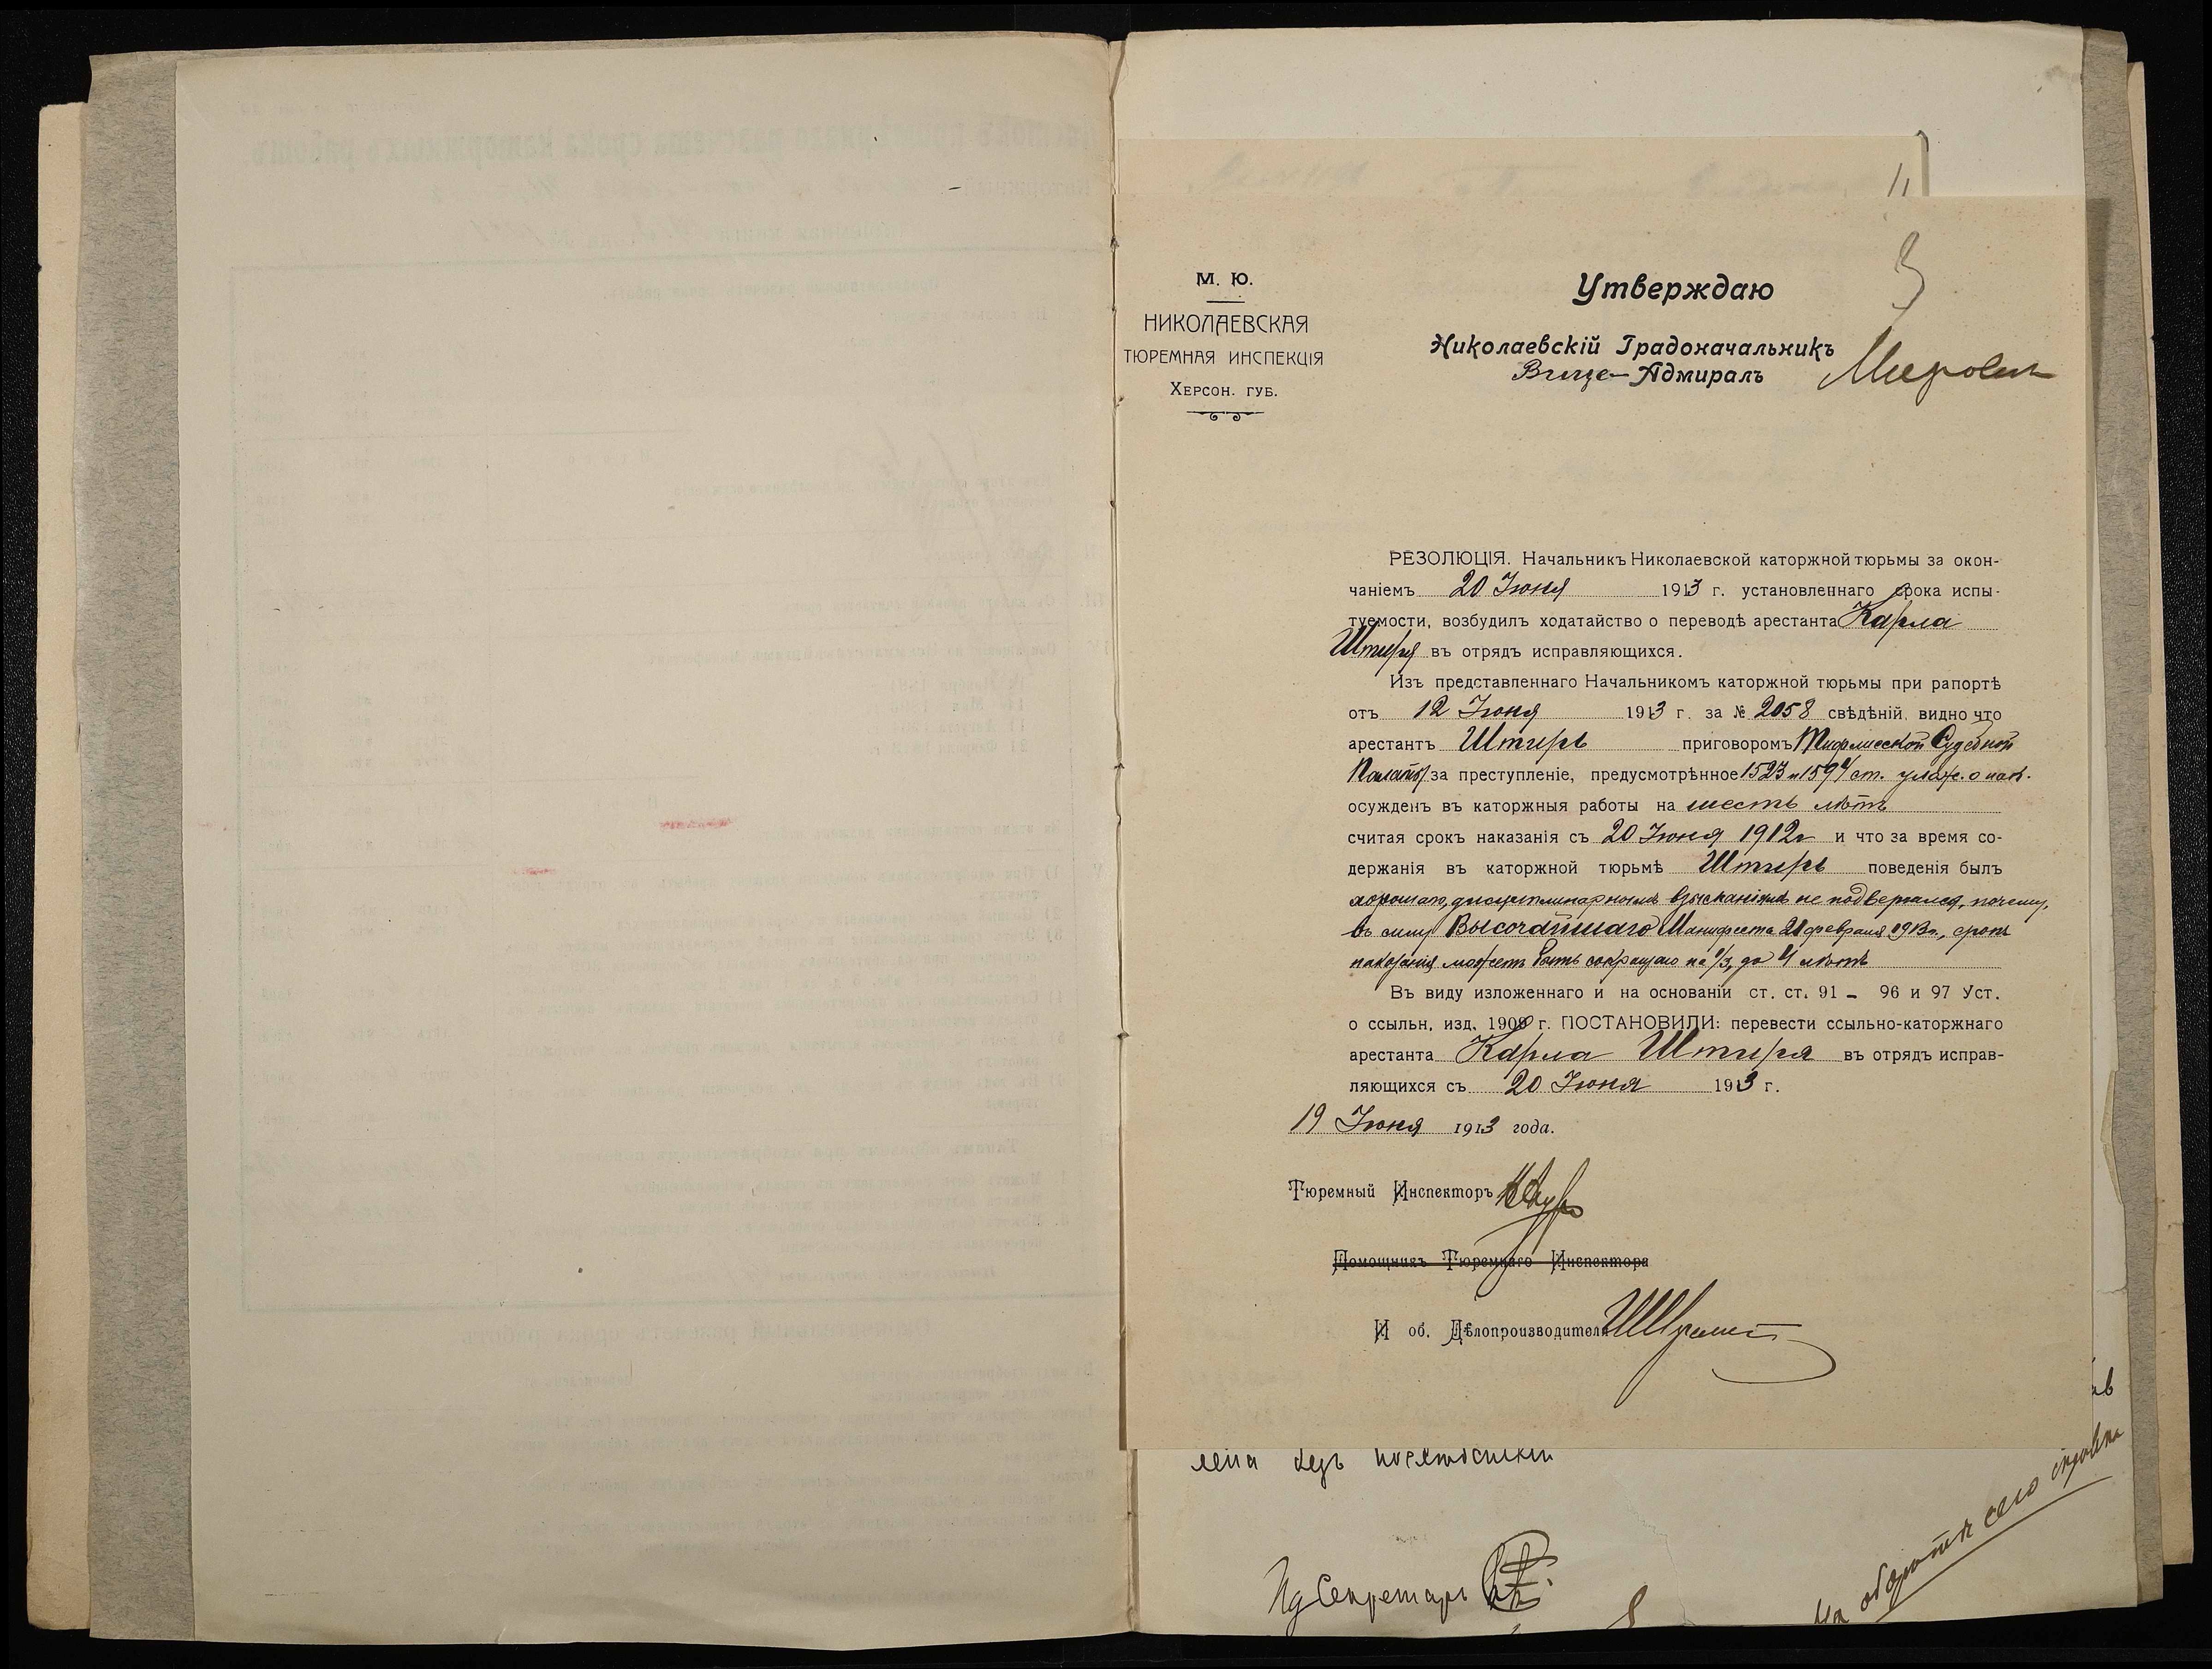 11
3
М. Ю.
НИКОЛАЕВСКАЯ
ТЮРЕМНАЯ ИНСПЕКЦІЯ
ХЕРСОН. ГУБ.
Утверждаю
Николаевскій Градоначальникъ
Вице-Адмиралъ
РЕЗОЛЮЦІЯ. Начальникъ Николаевской каторжной тюрьмы за окон-
чаніемъ 20 Іюня 1913 г. установленнаго срока испы-
туемости, возбудилъ ходатайство о переводѣ арестанта Карла
Штиря въ отрядъ исправляющихся.
Изъ представленнаго Начальникомъ каторжной тюрьмы при рапортѣ
отъ 12 Іюня 1913 г. за № 2058 свѣдѣній, видно что
арестантъ Штирь приговоромъ Тифлисской Судебной
Палаты за преступленіе, предусмотрѣнное 1523 и 159 ст. улож. о нак.
осужденъ въ каторжныя работы на шесть лѣтъ
считая срокъ наказанія съ 20 Іюня 1912 г и что за время со-
держанія въ каторжной тюрьмѣ Штирь поведенія былъ
хорошаго, дисциплинарнымъ взысканіямъ не подвергался, почему,
въ силу Высочайшаго Манифеста 21 февраля 1913 г., срокъ
наказанія можетъ быть сокращенъ на 1/3, до 4 лѣтъ
Въ виду изложеннаго и на основаніи ст. ст. 91 - 96 и 97 Уст.
о ссыльн. изд. 1909 г. ПОСТАНОВИЛИ: перевести ссыльно-каторжнаго
арестанта Карла Штиря въ отрядъ исправ-
ляющихся съ 20 Іюня 1913 г.
19 Іюня 1913 года.
Тюремный Инспекторъ
Помощникъ Тюремнаго Инспектора
И об. Дѣлопроизводителя
Ид Секретарь
на оборотѣ сего справка